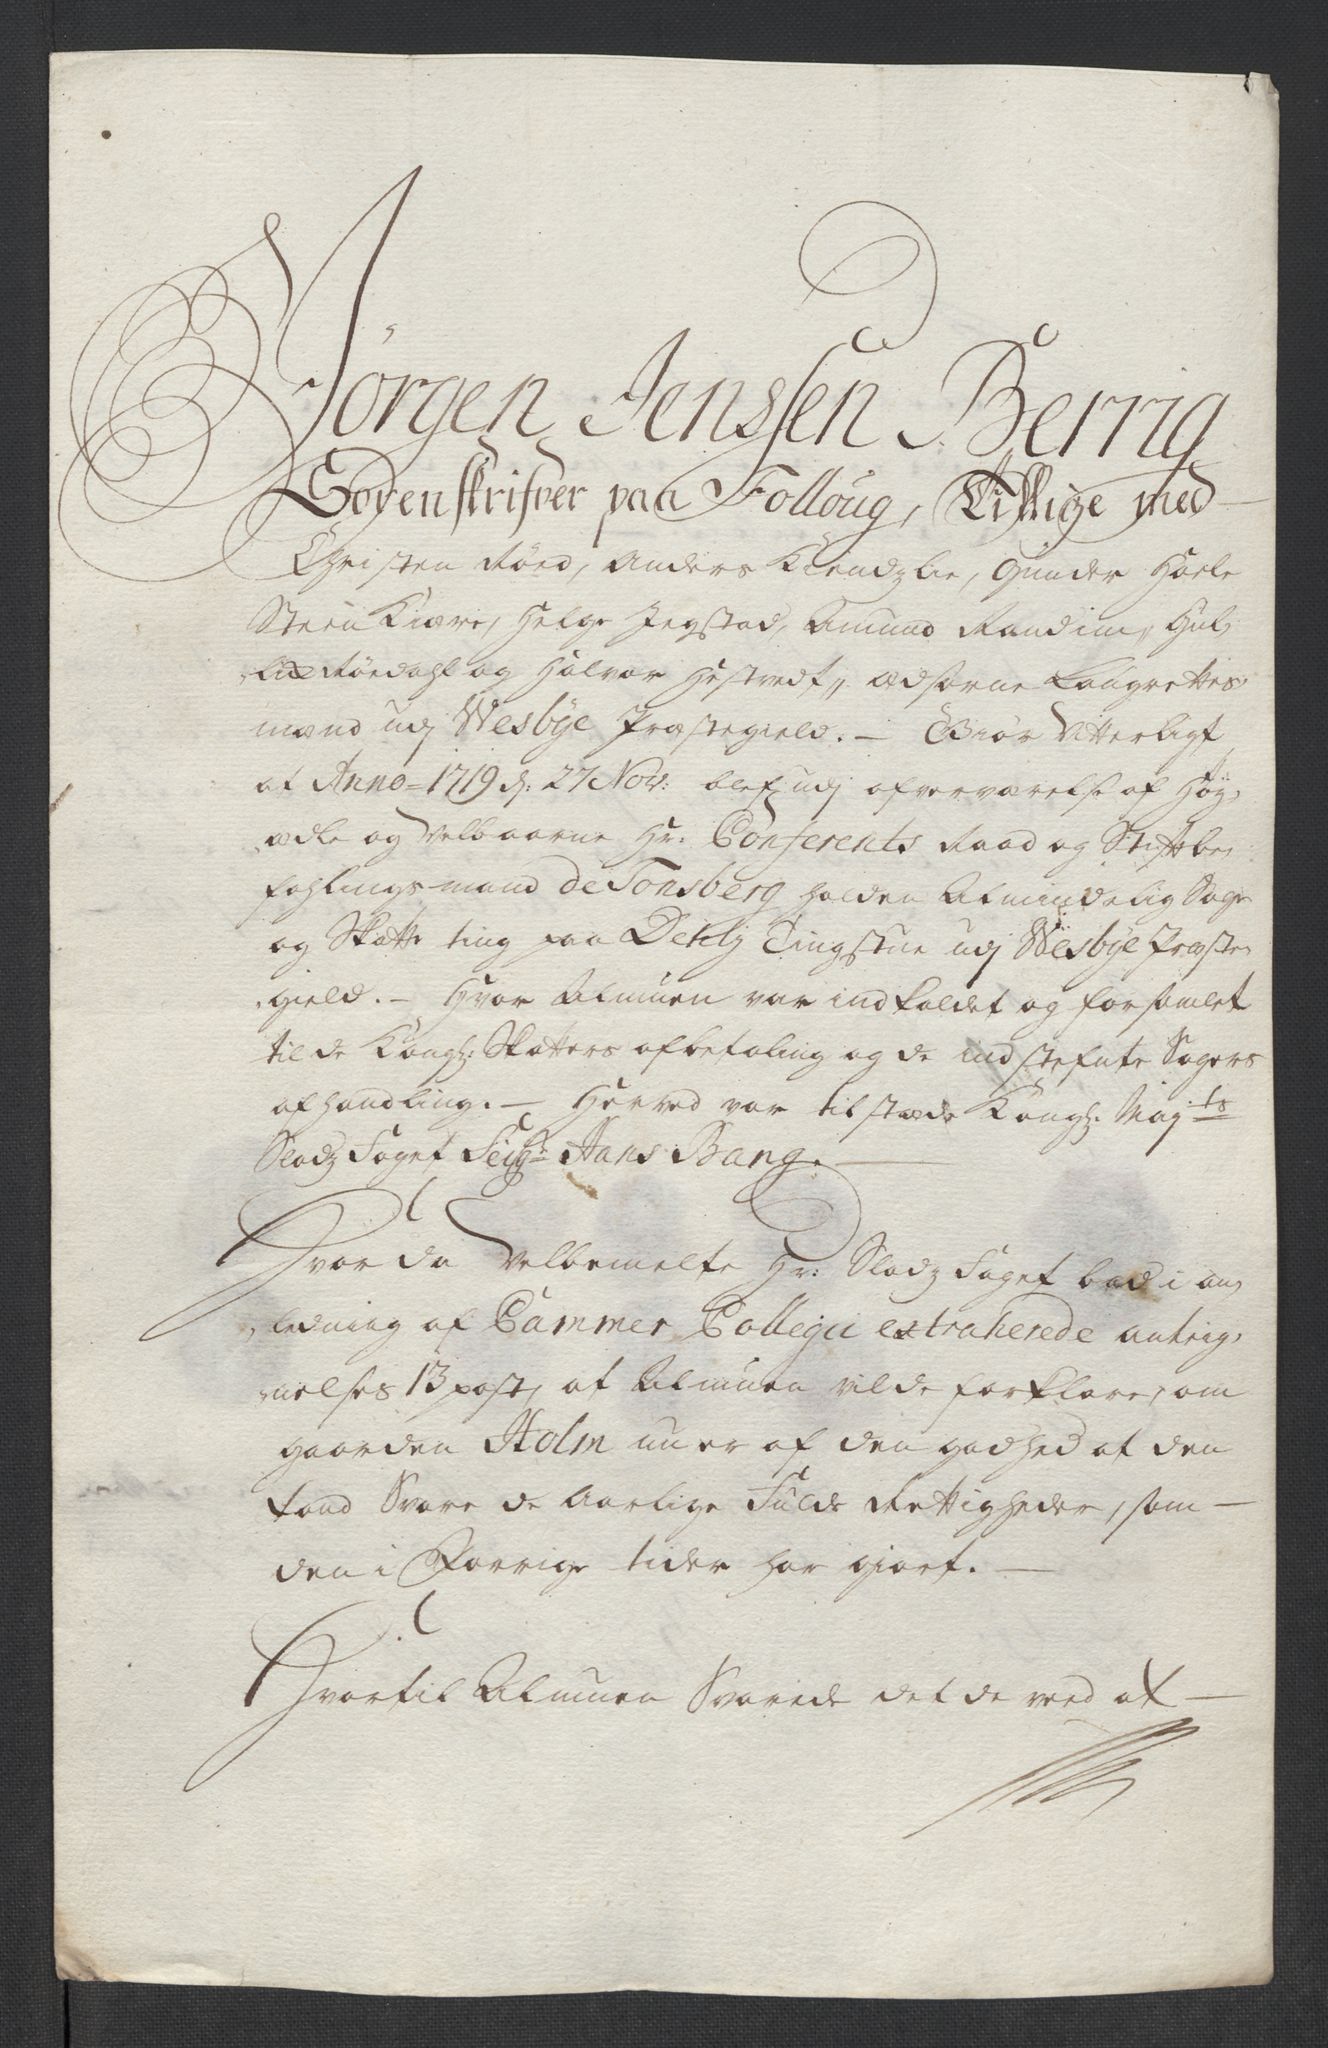 Jörgen Jenssen Berrig
Sorenskrifver paa Follöug, Tillige med
Christen Röed, Anders Kiendzlie, Gunder Hoele
Steen Kiære, Helge Jegstad, Amund Randim, Hul
Röedahl og Halvor Hestvedt, Edsorne Laugrettes
mænd udj Wesbÿe Præstegield. - Giör Vitterligt
at Anno = 1719 d: 27 Nov: blef udj ofververelse af Høy
ædle og Velbaarne Hr: Conferents Raad og Stiftbe
fahlings mand de Tonsberg holden Almindelig Sage
og Skatte ting paa Dehlj Tingstue udj Wesbÿe Præste
gield. - Hvor Almuen var indkaldet og forsamlet
til de Kongl: Skatters afbetaling og de indstefnte Sagers
afhandling. - Herved var tilstæde Kongl: Maj:ts
Slodz Foget Seigr Hans Bang.
Hvor da Velbemelte Hr: Slodz Foget bad i an
ledning af Cammer Collegii extraherede anteig
nelses 13 post, at Almuen vilde forklare, om
gaarden Holm nu er af den godhed at den
kand Svare de Aarlige Fulde Rettigheder, som
den i Forrige tider har giort. -
Hvortil Almuen Svarede det de veed at